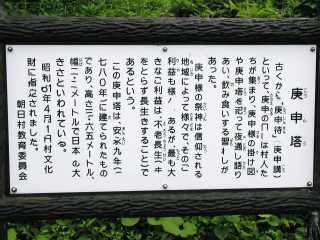 庚申塔
古くから「庚申待」「庚申講」
といって、庚申の日には村人た
ちが集まり、庚申様の掛け図
や庚申塔を祀って夜通し語り
あい、飲み食いする習わしが
あった。
庚申様の祭神は信仰される
地域によって様々で、そのご
利益も様々あるが、最も大
きなご利益は「不老長生」
をとらず長生きすること）で
あるという。
この庚申塔は、安永九年（一
七八〇年）に建てられたもの
であり、高さ三・六五メートル、
幅二・二メートルで日本最大
きさといわれている。
昭和61年4月1日村文化
財に指定されました。
朝日村教育委員会